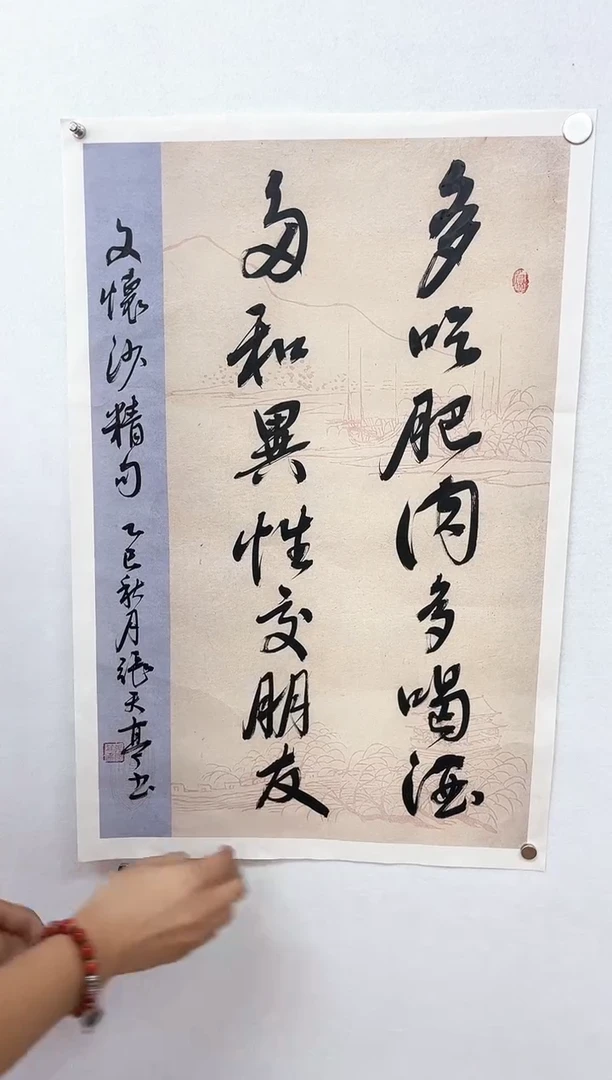 多吃肥肉多喝酒
多和異性交朋友
文懷沙精句 乙巳秋月張天亭書